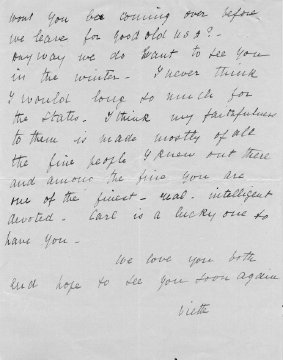 wont you be coming over before
we leave for good old USA? -
anyway we do want to see you
in the winter - I never think
I would long so much for
the States. I think my faithfulness
to them is made mostly of all
the fine people I knew out there
and among the fine you are
one of the finest - real - intelligent
devoted - Carl is a lucky one to
have you -
We love you both
and hope to see you soon again